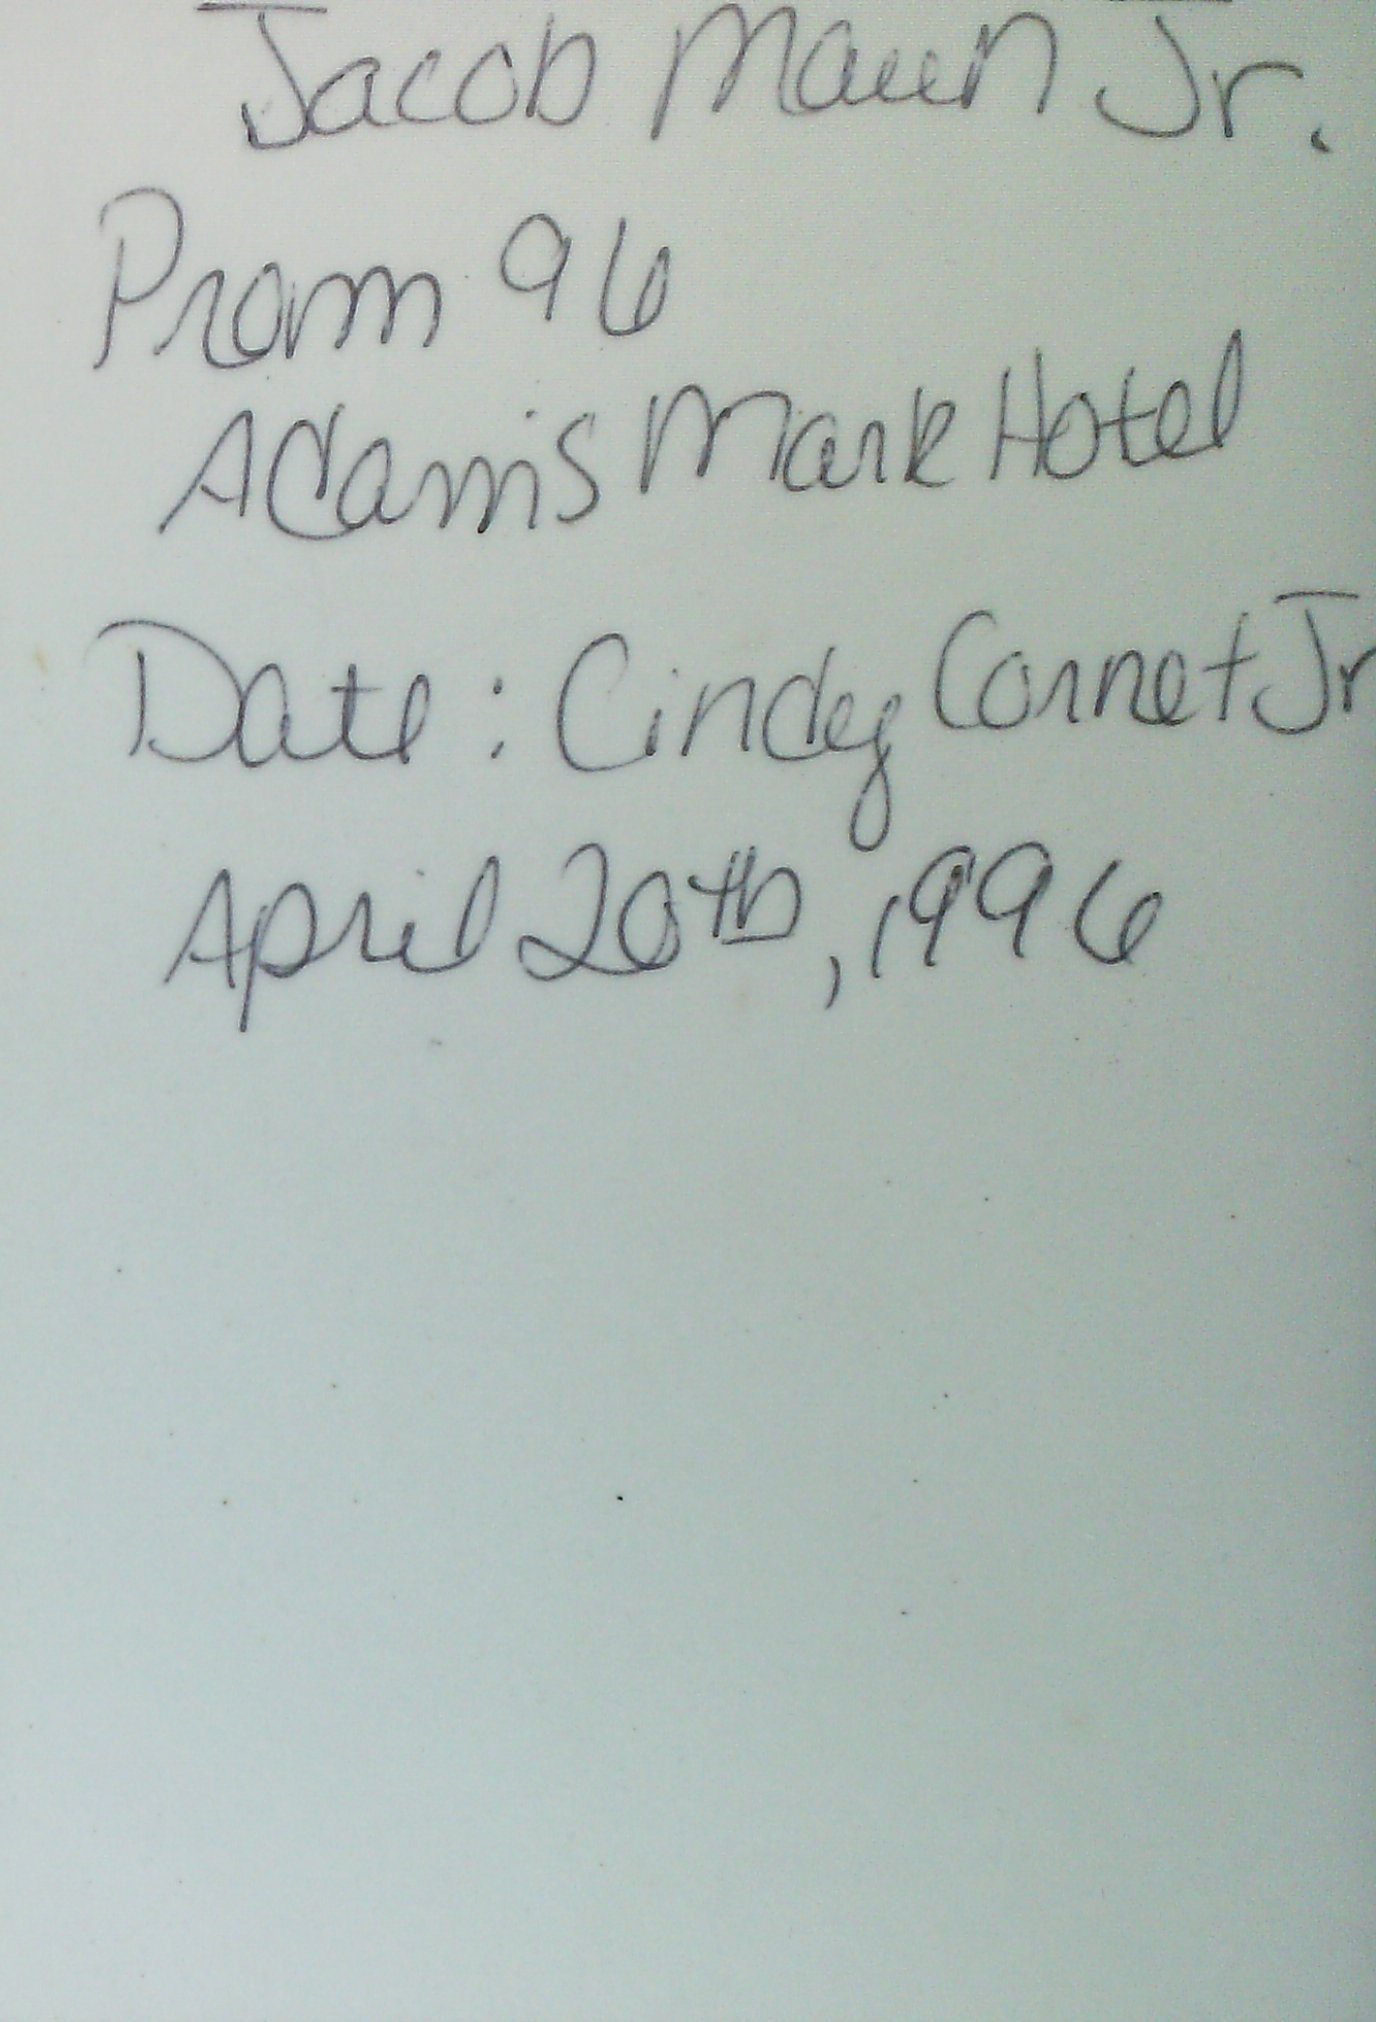 Jacob Maun Jr.
Prom 96
Adam's Mark Hotel
Date: Cindy Cornet Jr
April 20th, 1996